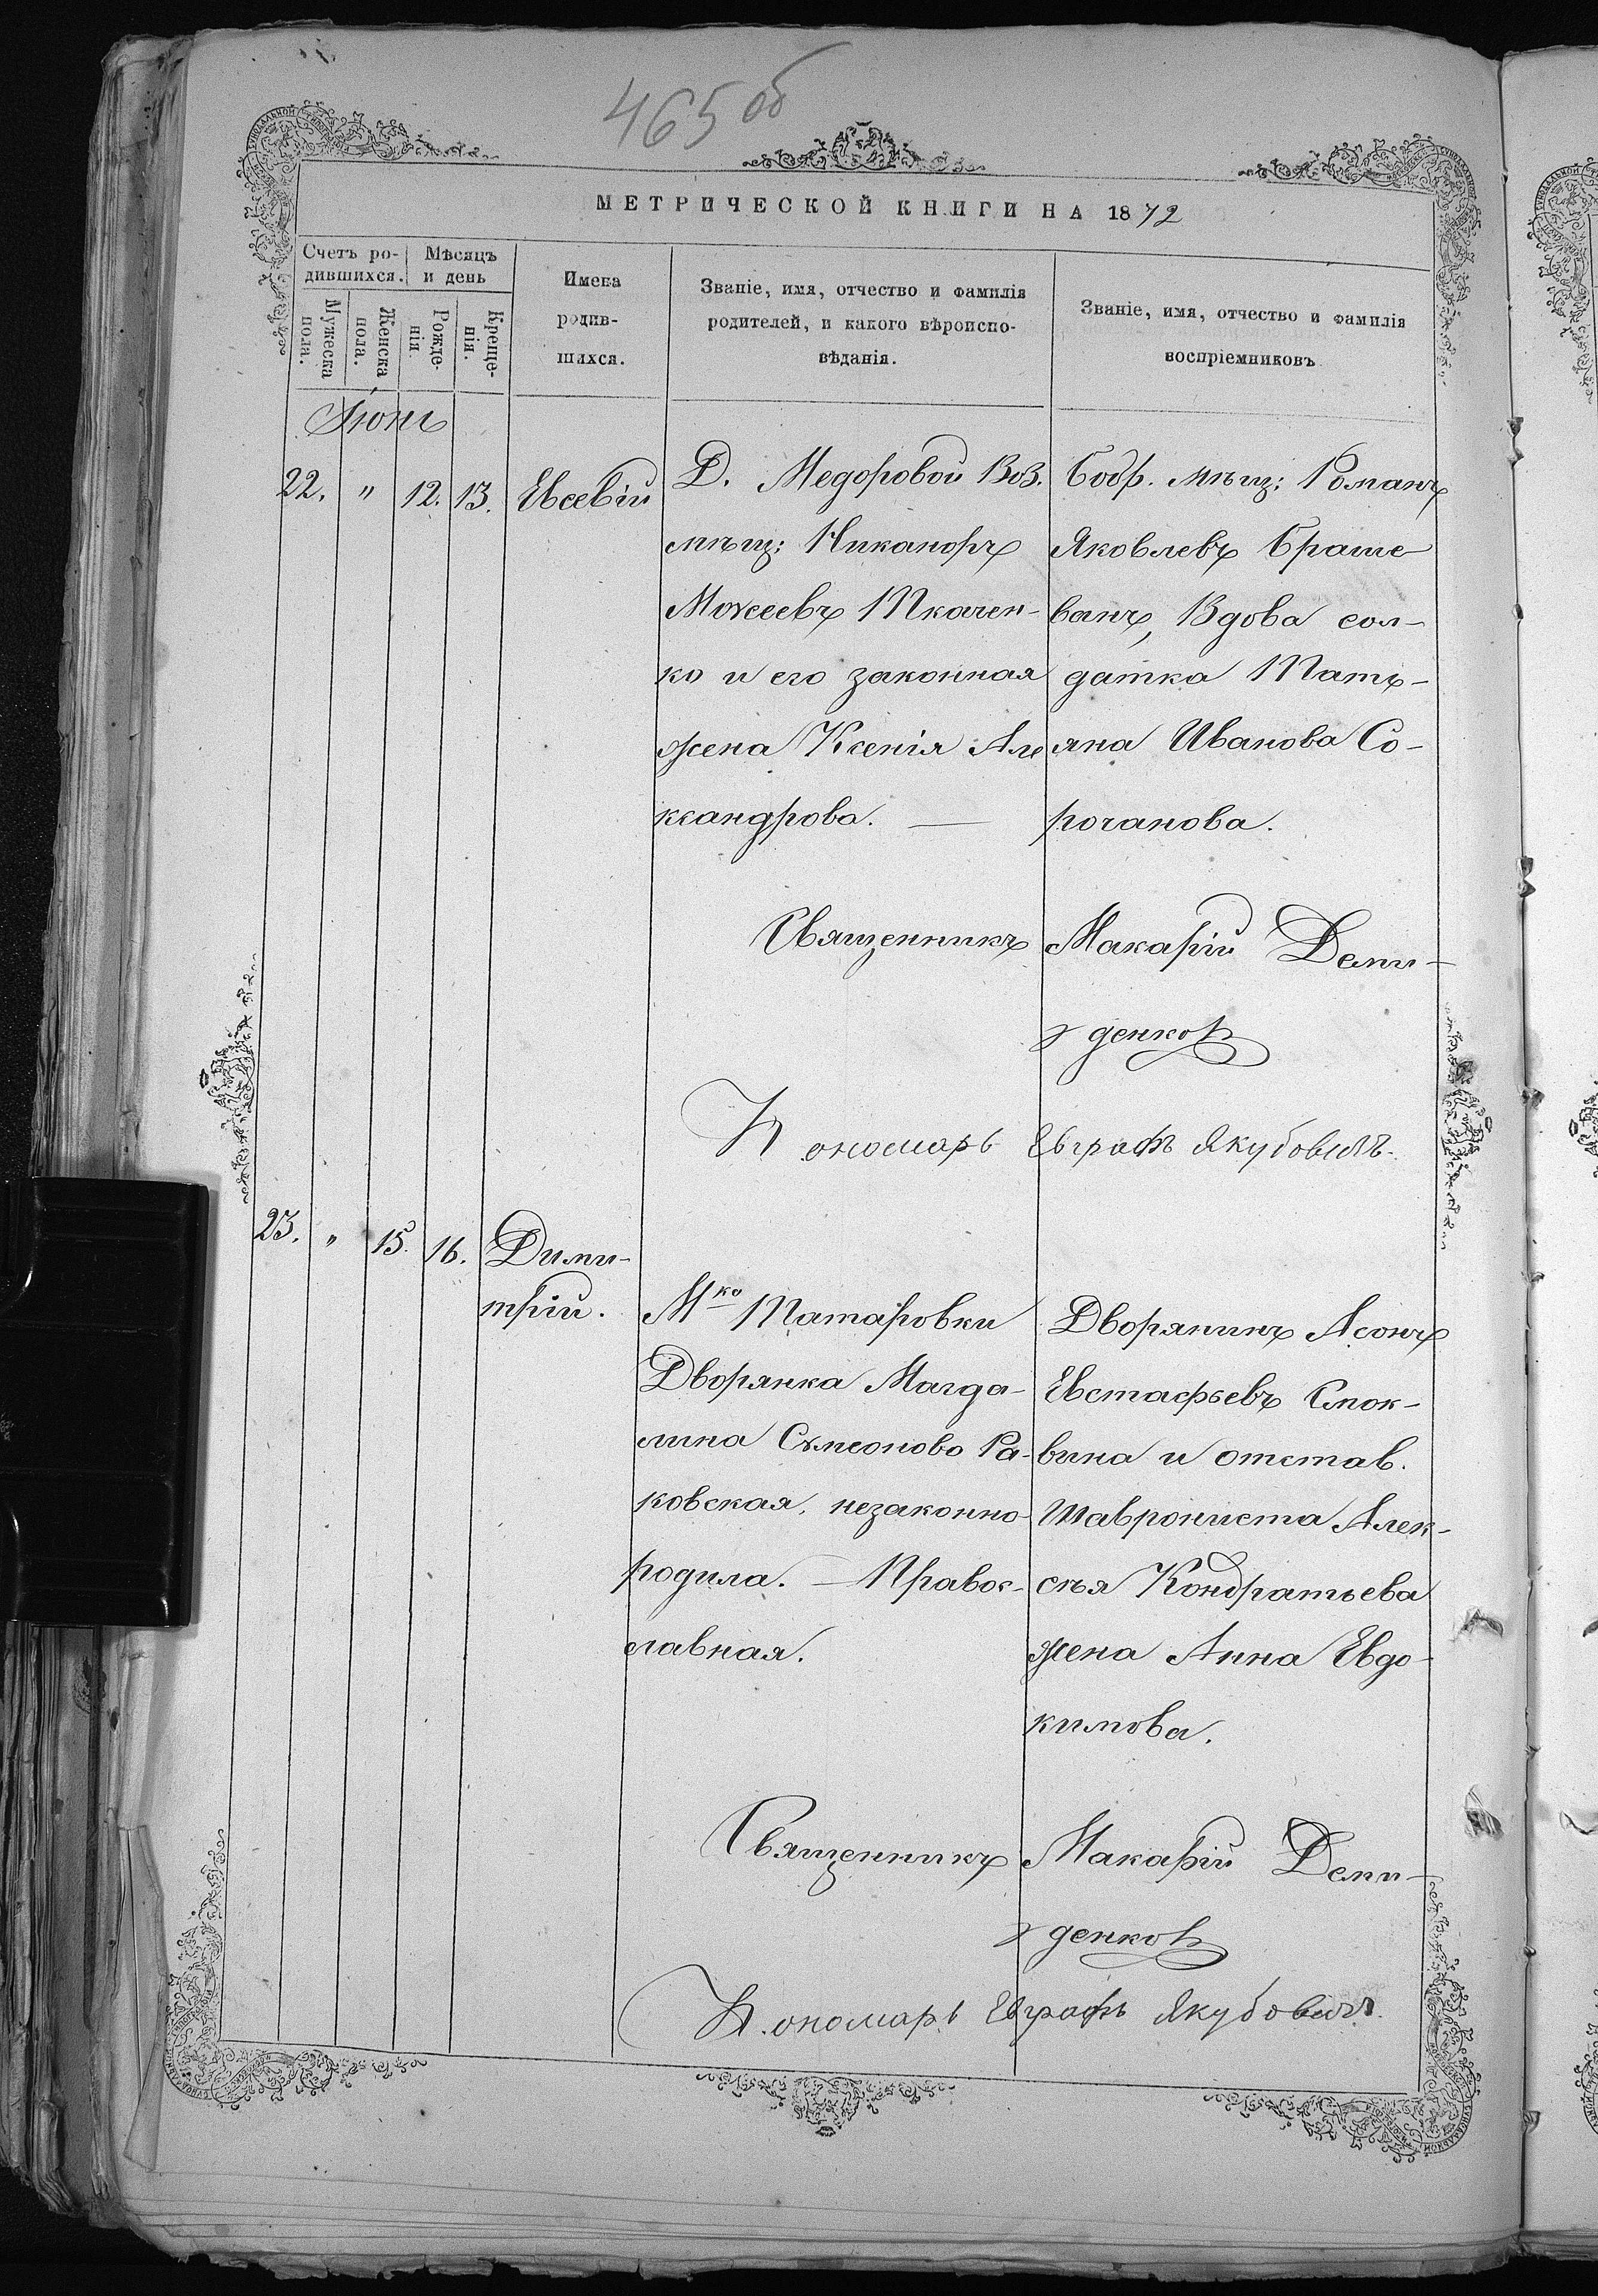 465 об
МЕТРИЧЕСКОЙ КНИГИ НА 1872
Счетъ ро-
дившихся.
Мѣсяцъ
и день
Мужеска
пола.
Женска
пола.
Рожде-
нія.
Креще-
нія.
Имена
родив-
шихся.
Званіе, имя, отчество и фамилія
родителей, и какого вѣроиспо-
вѣданія.
Званіе, имя, отчество и фамилія
воспріемниковъ
Іюнь
22. " 12. 13. Евсевій
Д. Медоровой Воз.
мѣщ: Никаноръ
Моѵсеевъ Ткачен-
ко и его законная
жена Ксенія Але
ксандрова. —
Бобр. мѣщ: Романъ
Яковлевъ Браше
ванъ, Вдова сол-
датка Тать-
яна Иванова Со-
рочанова.
Священникъ Макарій Деми-
денков
Пономарь Евграфъ Якубовичъ.
23. " 15. 16. Дими-
трій.
Мко Татаровки
Дворянка Магда-
лина Сѵмеонова Ра-
ковская, незаконно
родила. — Правос-
лавная.
Дворянинъ Асонъ
Евстафьевъ Смок-
вина и отстав.
Алек-
сѣя Кондратьева
жена Анна Евдо-
кимова.
Священникъ Макарій Деми-
денков
Пономарь Евграфъ Якубовичъ.